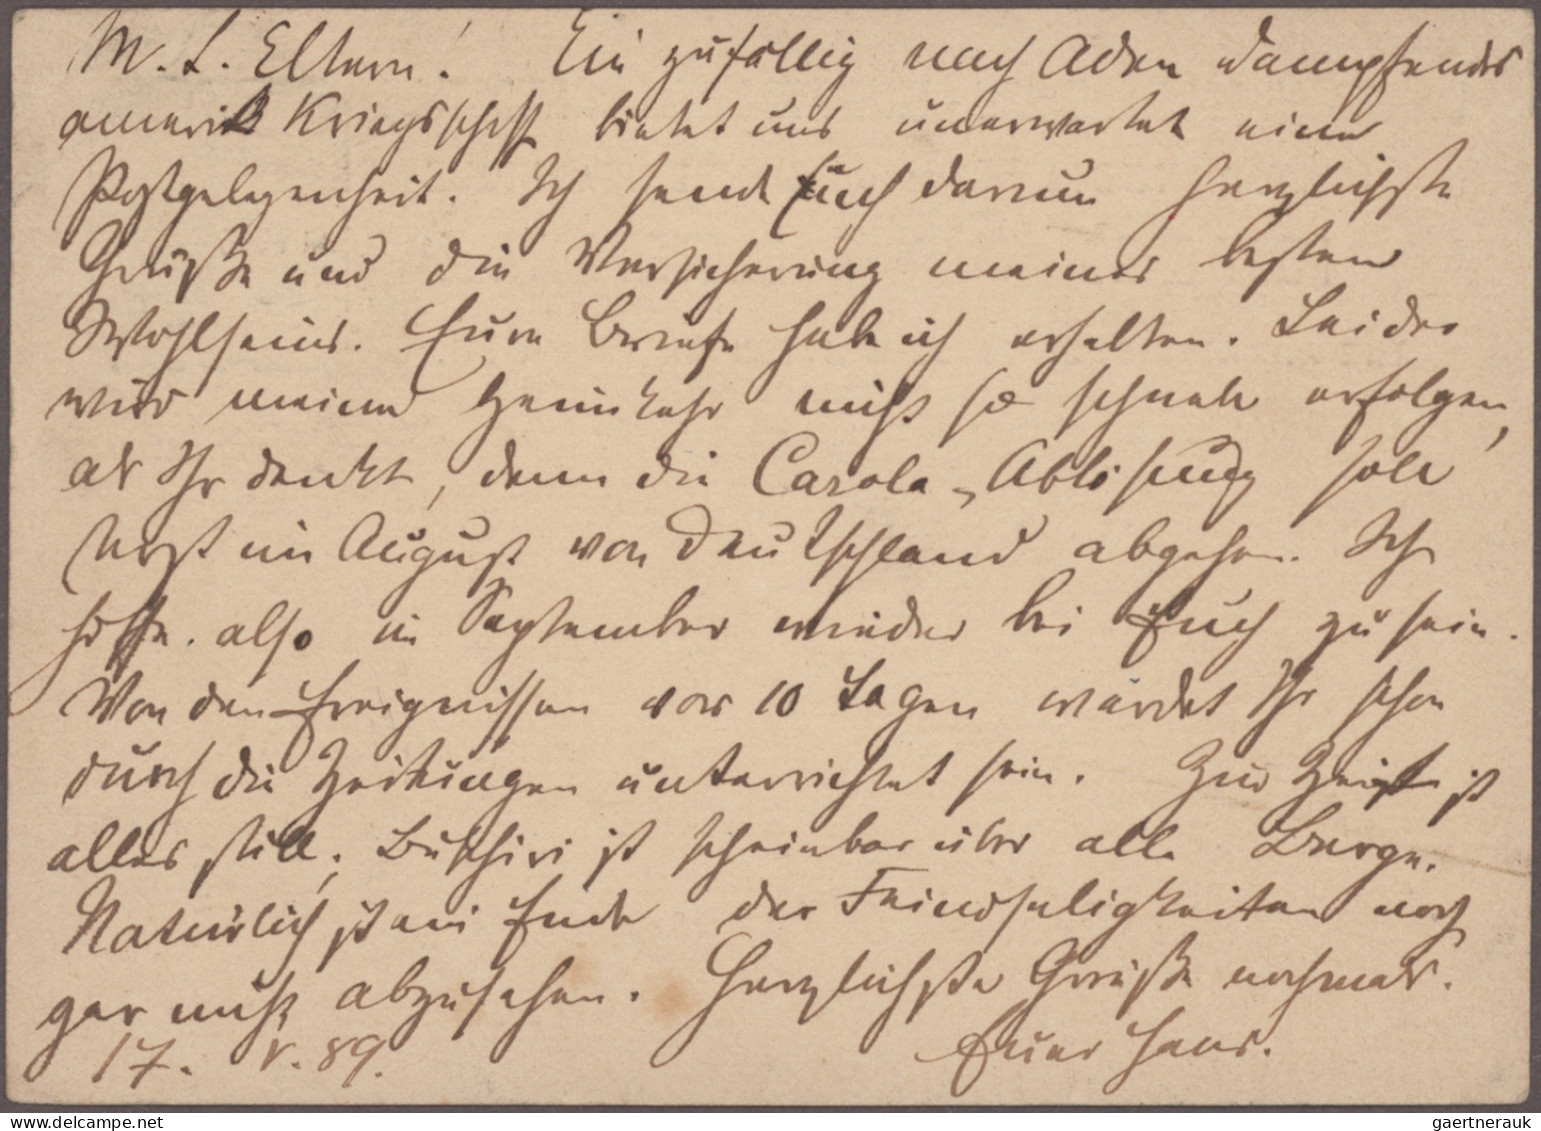 M. L. Eltern! Ein zufällig nach Aden dampfendes
amerik Kriegsschiff bietet uns unerwartet eine
Postgelegenheit. Ich sende Euch darum herzlichste
Grüße und die Versicherung meines besten
Wohlseins. Eure Briefe habe ich erhalten. Leider
wird meine Heimkehr nicht so schnell erfolgen,
als Ihr denkt, denn die Carola-Ablösung soll
erst im August von Deutschland abgehen. Ich
hoffe also im September wieder bei Euch zu sein.
Von den Ereignissen vor 10 Tagen werdet Ihr schon
durch die Zeitungen unterrichtet sein. Zur Zeit ist
alles still; Buschiri ist scheinbar über alle Berge.
Natürlich ist ein Ende der Feindseligkeiten noch
gar nicht abzusehen. Herzlichste Grüße nochmals.
17. V. 89. Euer Hans.
gaertneraukt.net
gaertnerauk